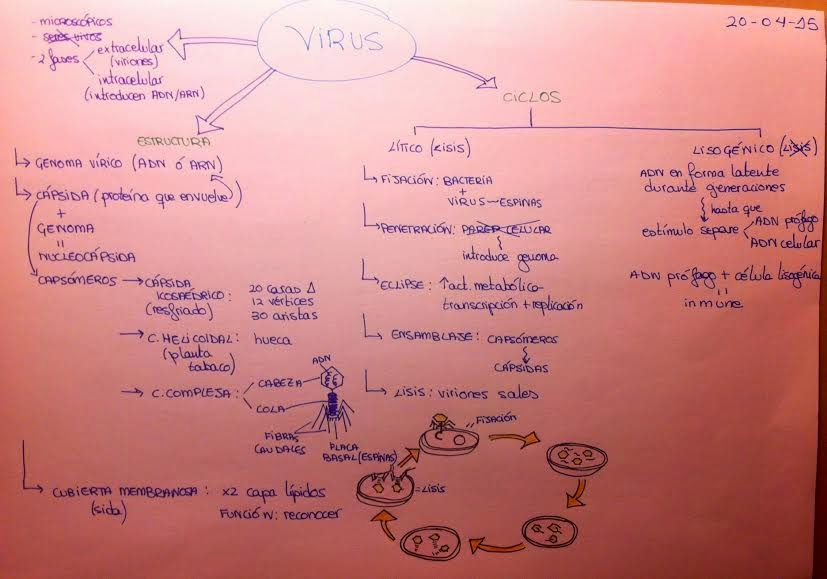 20-04-15
VIRUS
- microscópicos
- seres vivos
- 2 fases
extracelular
(viriones)
intracelular
(introducen ADN/ARN)
ESTRUCTURA
GENOMA VÍRICO (ADN ó ARN)
CÁPSIDA (proteína que envuelve)
+
GENOMA
=
NUCLEOCÁPSIDA
CAPSÓMEROS
CÁPSIDA
ICOSAÉDRICO:
(resfriado)
20 caras Δ
12 vértices
30 aristas
C. HELICOIDAL: hueca
(planta
tabaco)
C. COMPLEJA:
CABEZA
COLA
ADN
FIBRAS
CAUDALES
PLACA
BASAL (ESPINAS)
CUBIERTA MEMBRANOSA: x2 capa lípidos
(sida)
FUNCIÓN: reconocer
CICLOS
LÍTICO (LISIS)
FIJACIÓN: BACTERIA
+
VIRUS—ESPINAS
PENETRACIÓN: PARED CELULAR
introduce genoma
ECLIPSE: ↑act. metabólica
transcripción + replicación
ENSAMBLAJE: CAPSÓMEROS
CÁPSIDAS
LISIS: viriones sales
FIJACIÓN
=LISIS
LISOGÉNICO (LISIS)
ADN en forma latente
durante generaciones
hasta que
estímulo separe
ADN prófago
ADN celular
ADN prófago + célula lisogénica
=
inmune